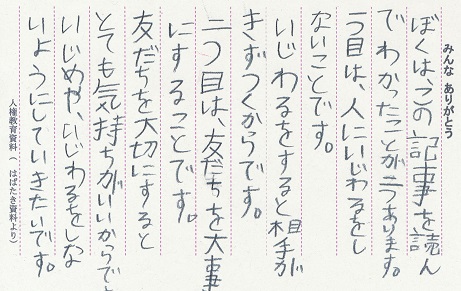 みんな ありがとう
ぼくは、この記事を読ん
でわかったことが二つあります。
一つ目は、人にいじわるをし
ないことです。
いじわるをすると相手が
きずつくからです。
二つ目は、友だちを大事
にすることです。
友だちを大切にすると
とても気持ちがいいからで
いじめや、いじわるをしな
いようにしていきたいです。
人権教育資料（はばたき資料より）